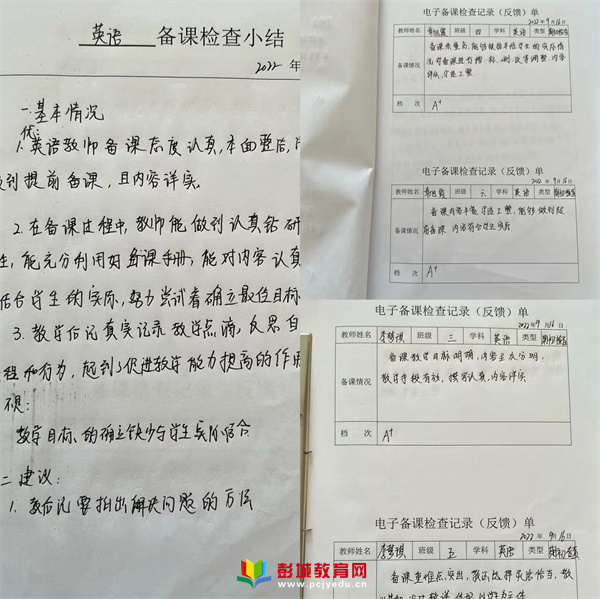 英语 备课检查小结
2022 年
一.基本情况
优:
1.英语教师备课态度认真,本面整洁,
做到提前备课,且内容详实
2.在备课过程中,教师能做到认真钻研
能充分利用好备课手册,能对内容认真
结合学生的实际,努力尝试着确立最佳目标
3.教学后记真实记录教学点滴,反思自
程和行为,起到了促进教学能力提高的作用
不足:
教学目标的确立缺少与学生实际结合
二 建议:
1.教后记要指出解决问题的方法
电子备课检查记录(反馈)单
2022年9月16日
教师姓名 班级 四 学科 英语 类型 期初检查
备课情况
内容
详实,书写工整
档 次 A+
电子备课检查记录(反馈)单
2022年9月16日
教师姓名 班级 六 学科 英语 类型 期初检查
备课内容丰富,书写工整,能够做到提
前备课,内容符合学生实际
备课情况
档 次 A+
电子备课检查记录(反馈)单
2022年9月16日
教师姓名 李梦琪 班级 三 学科 英语 类型 期初检查
备课教学目标明确,内容主次分明,
教学手段有效,撰写认真,内容详实
备课情况
档 次 A+
电子备课检查记录(反馈)单
2022年9月16日
教师姓名 李梦琪 班级 五 学科 英语 类型 期初检查
备课重难点突出,教法选择灵活恰当,教
彭城教育网
www.pcjyedu.com